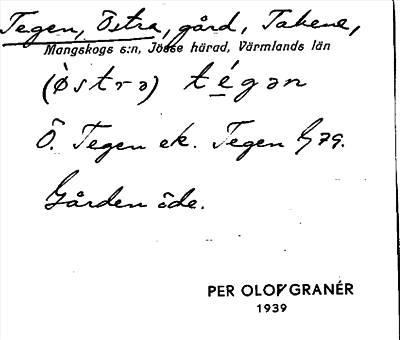 Tegen, Östra, gård, Takene,
Mangskogs s:n, Jösse härad, Värmlands län
(òstrə) tégən
Ö. Tegen ek. Tegen G79.
Gården öde.
PER OLOF GRANÉR
1939